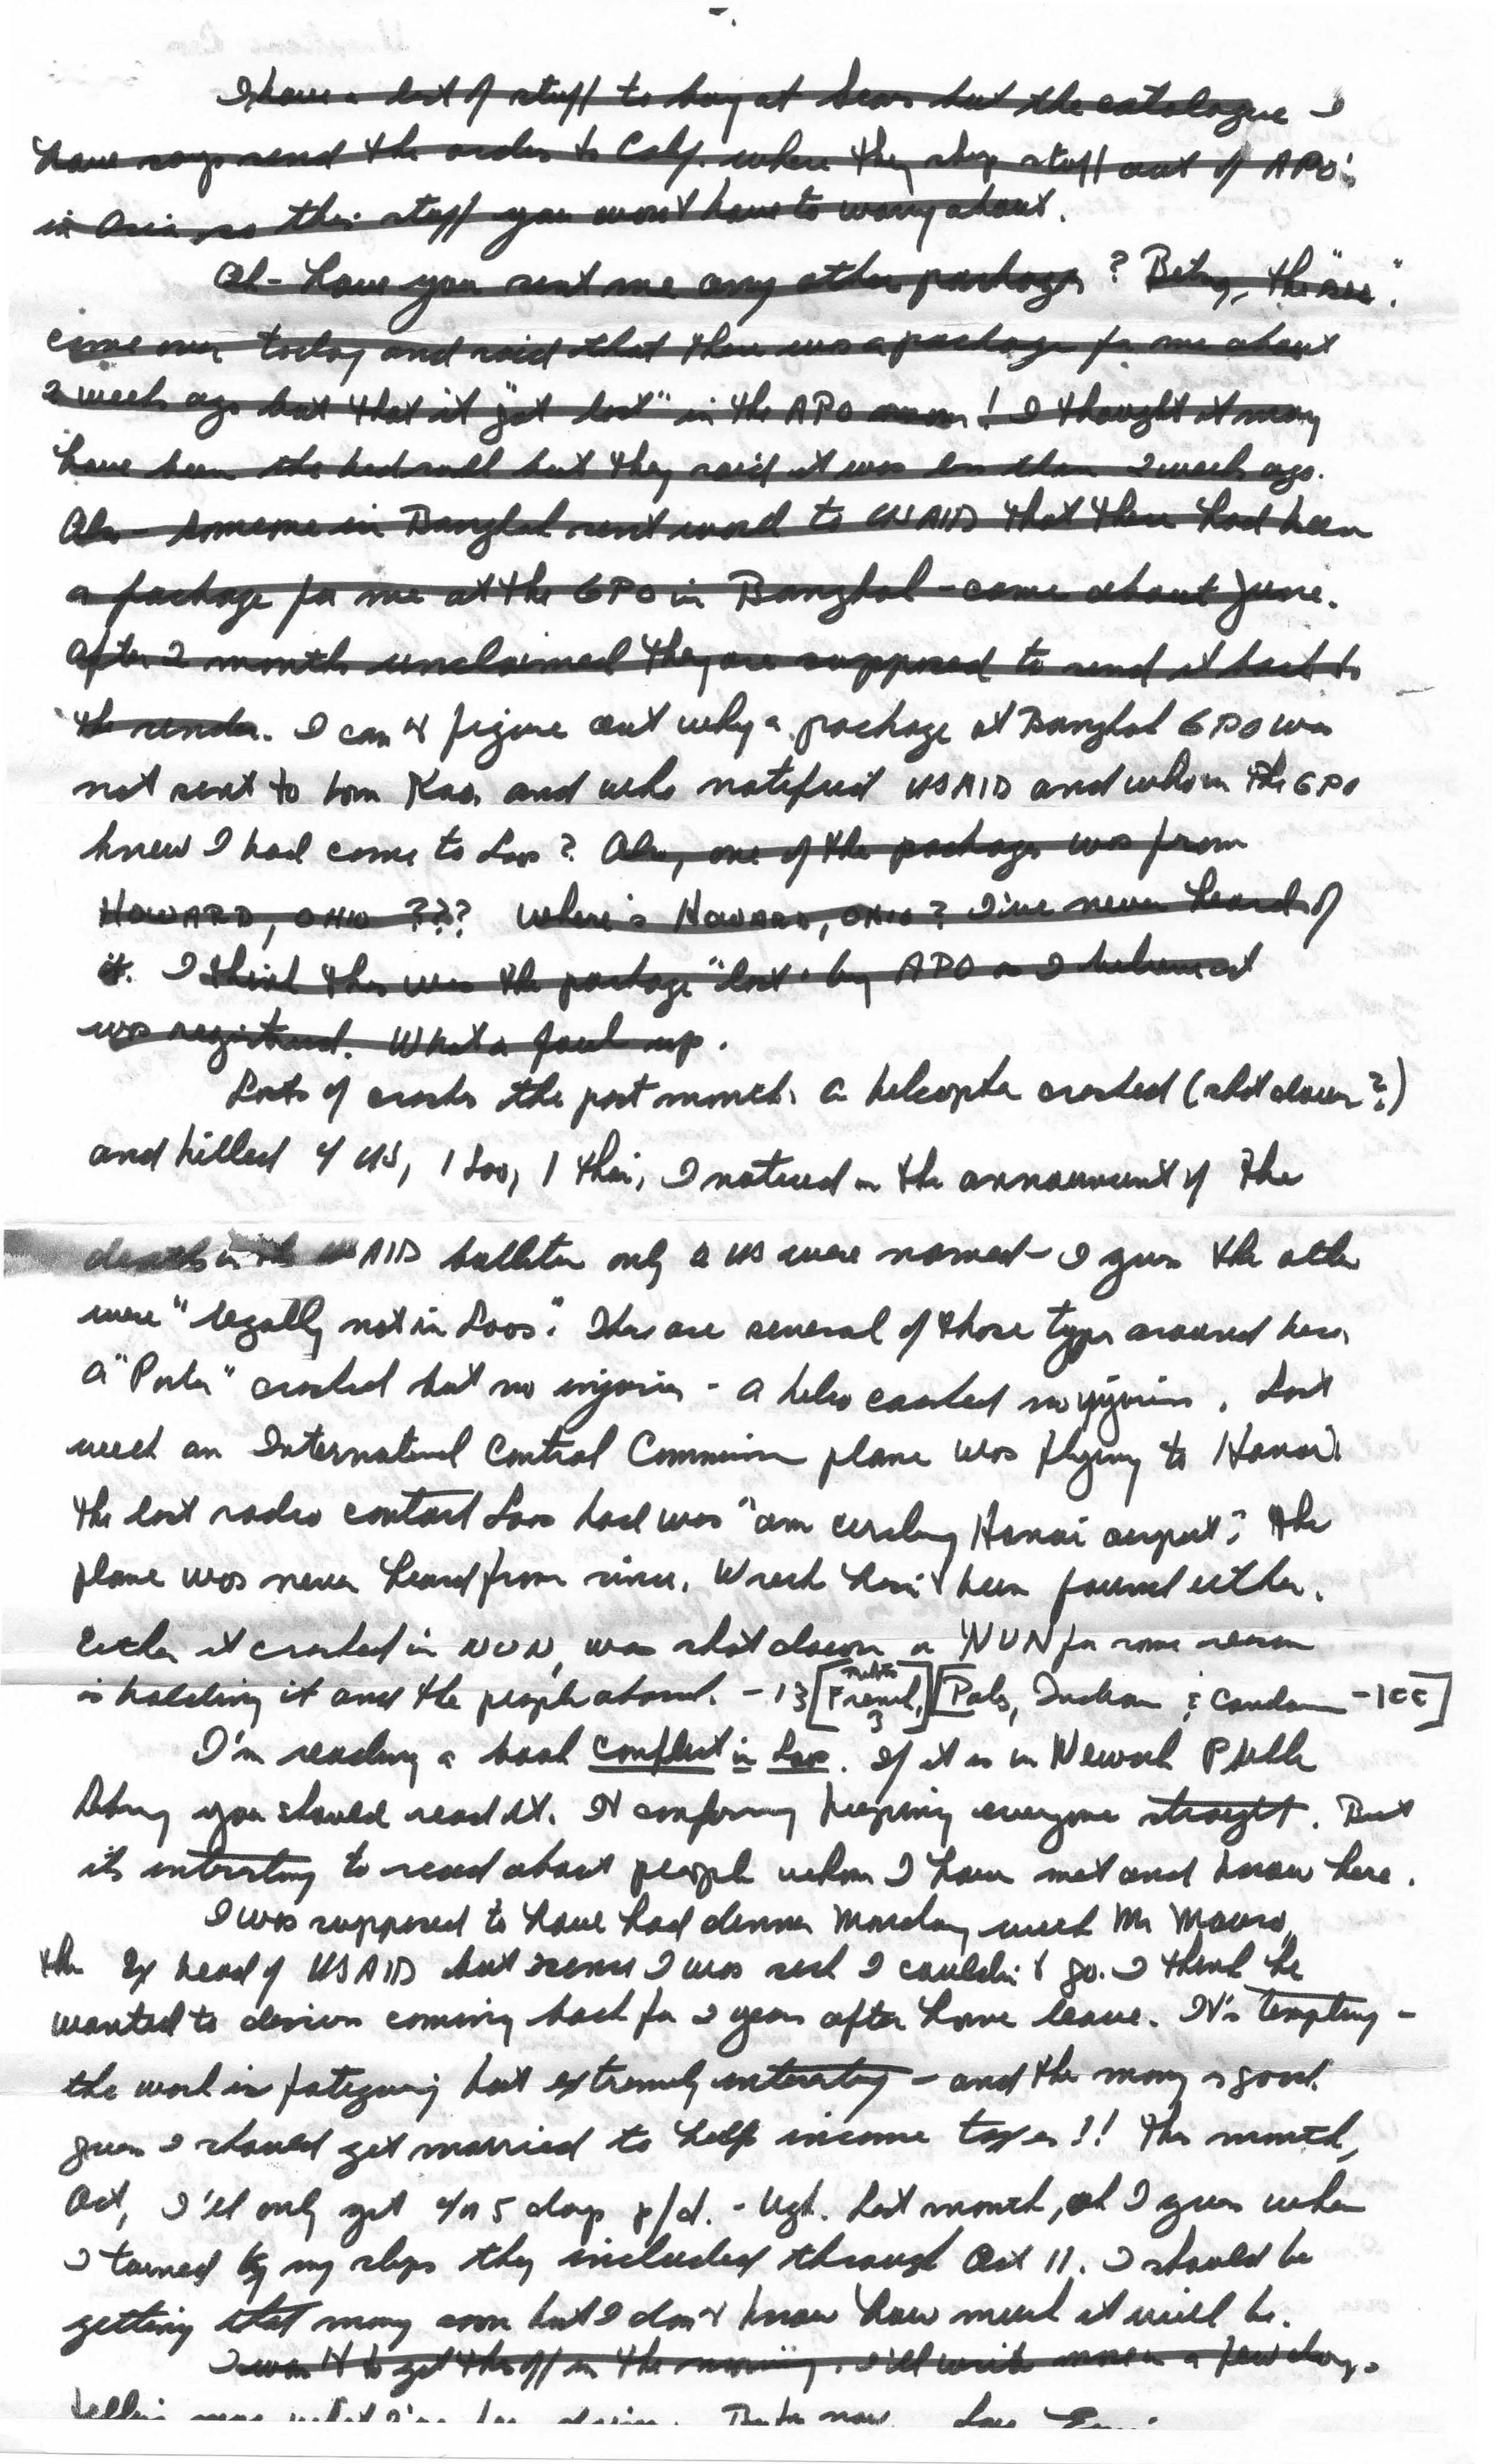 I have a list of stuff to buy at Sears but the catalogue I
have says send the order to Calif. where they ship stuff out of APO's
in Asia so this stuff you won't have to worry about.
Al- have you sent me any other package? Betsy, the "sec".
came over today and said that there was a package for me about
2 weeks ago but that it "got lost" in the APO room! I thought it may
have been the bedroll but they said it was less than 2 weeks ago.
Also - someone in Bangkok sent word to USAID that there had been
a package for me at the GPO in Bangkok - came about June.
After 2 months unclaimed they are supposed to send it back to
the sender. I can't figure out why a package at Bangkok GPO was
not sent to Kom Kaen and who notified USAID and whom the GPO
knew I had come to Laos? Also, one of the packages was from
HOWARD, OHIO ??? Where's HOWARD, OHIO? I've never heard of
it. I think this was the package "lost" by APO as I believe it
was registered. What a foul up.
Lots of crashes the past month. A helicopter crashed (shot down?)
and killed 4 US, 1 Lao, 1 Thai, I noticed in the announcement of the
deaths in the USAID bulletin only 2 US were named - I guess the other
were "legally not in Laos". There are several of those types around here.
A "Porter" crashed but no injuries - a helio crashed no injuries. Last
week an International Control Commission plane was flying to Hanoi.
the last radio contact Laos had was "am circling Hanoi airport". The
plane was never heard from since. Wreck hasn't been found either.
Either it crashed in NVN, was shot down or NVN for some reason
is holding it and the people aboard. - 13 [French, 3] [Pols, Indian & Canadian - ICC]
I'm reading a book Conflict in Laos. If it is in Newark Public
Library you should read it. It confusing keeping everyone straight. But
its interesting to read about people whom I have met and know here.
I was supposed to have had dinner Monday with Mr Mauro,
the Ex head of USAID but since I was sick I couldn't go. I think he
wanted to discuss coming back for 2 years after home leave. It's tempting -
the work is fatiguing but extremely interesting - and the money is good.
guess I should get married to help income taxes!! This month,
Oct, I'll only get 4 or 5 days p/d. - Ugh. Last month, oh I guess when
I turned in my slips they included through Oct 11. I should be
getting that money soon but I don't know how much it will be.
I want to get this off in the morning. I'll write more in a few days
telling more what I've been doing. But for now. Love